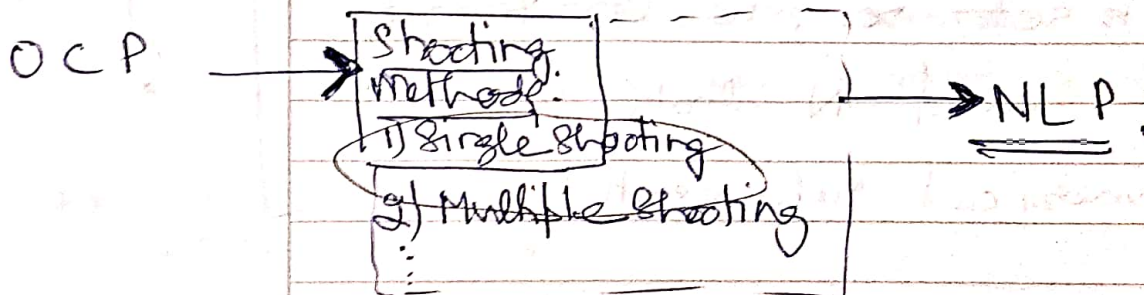 OCP
Shooting
Methods.
1) Single Shooting
2) Multiple Shooting
⋮
NLP.